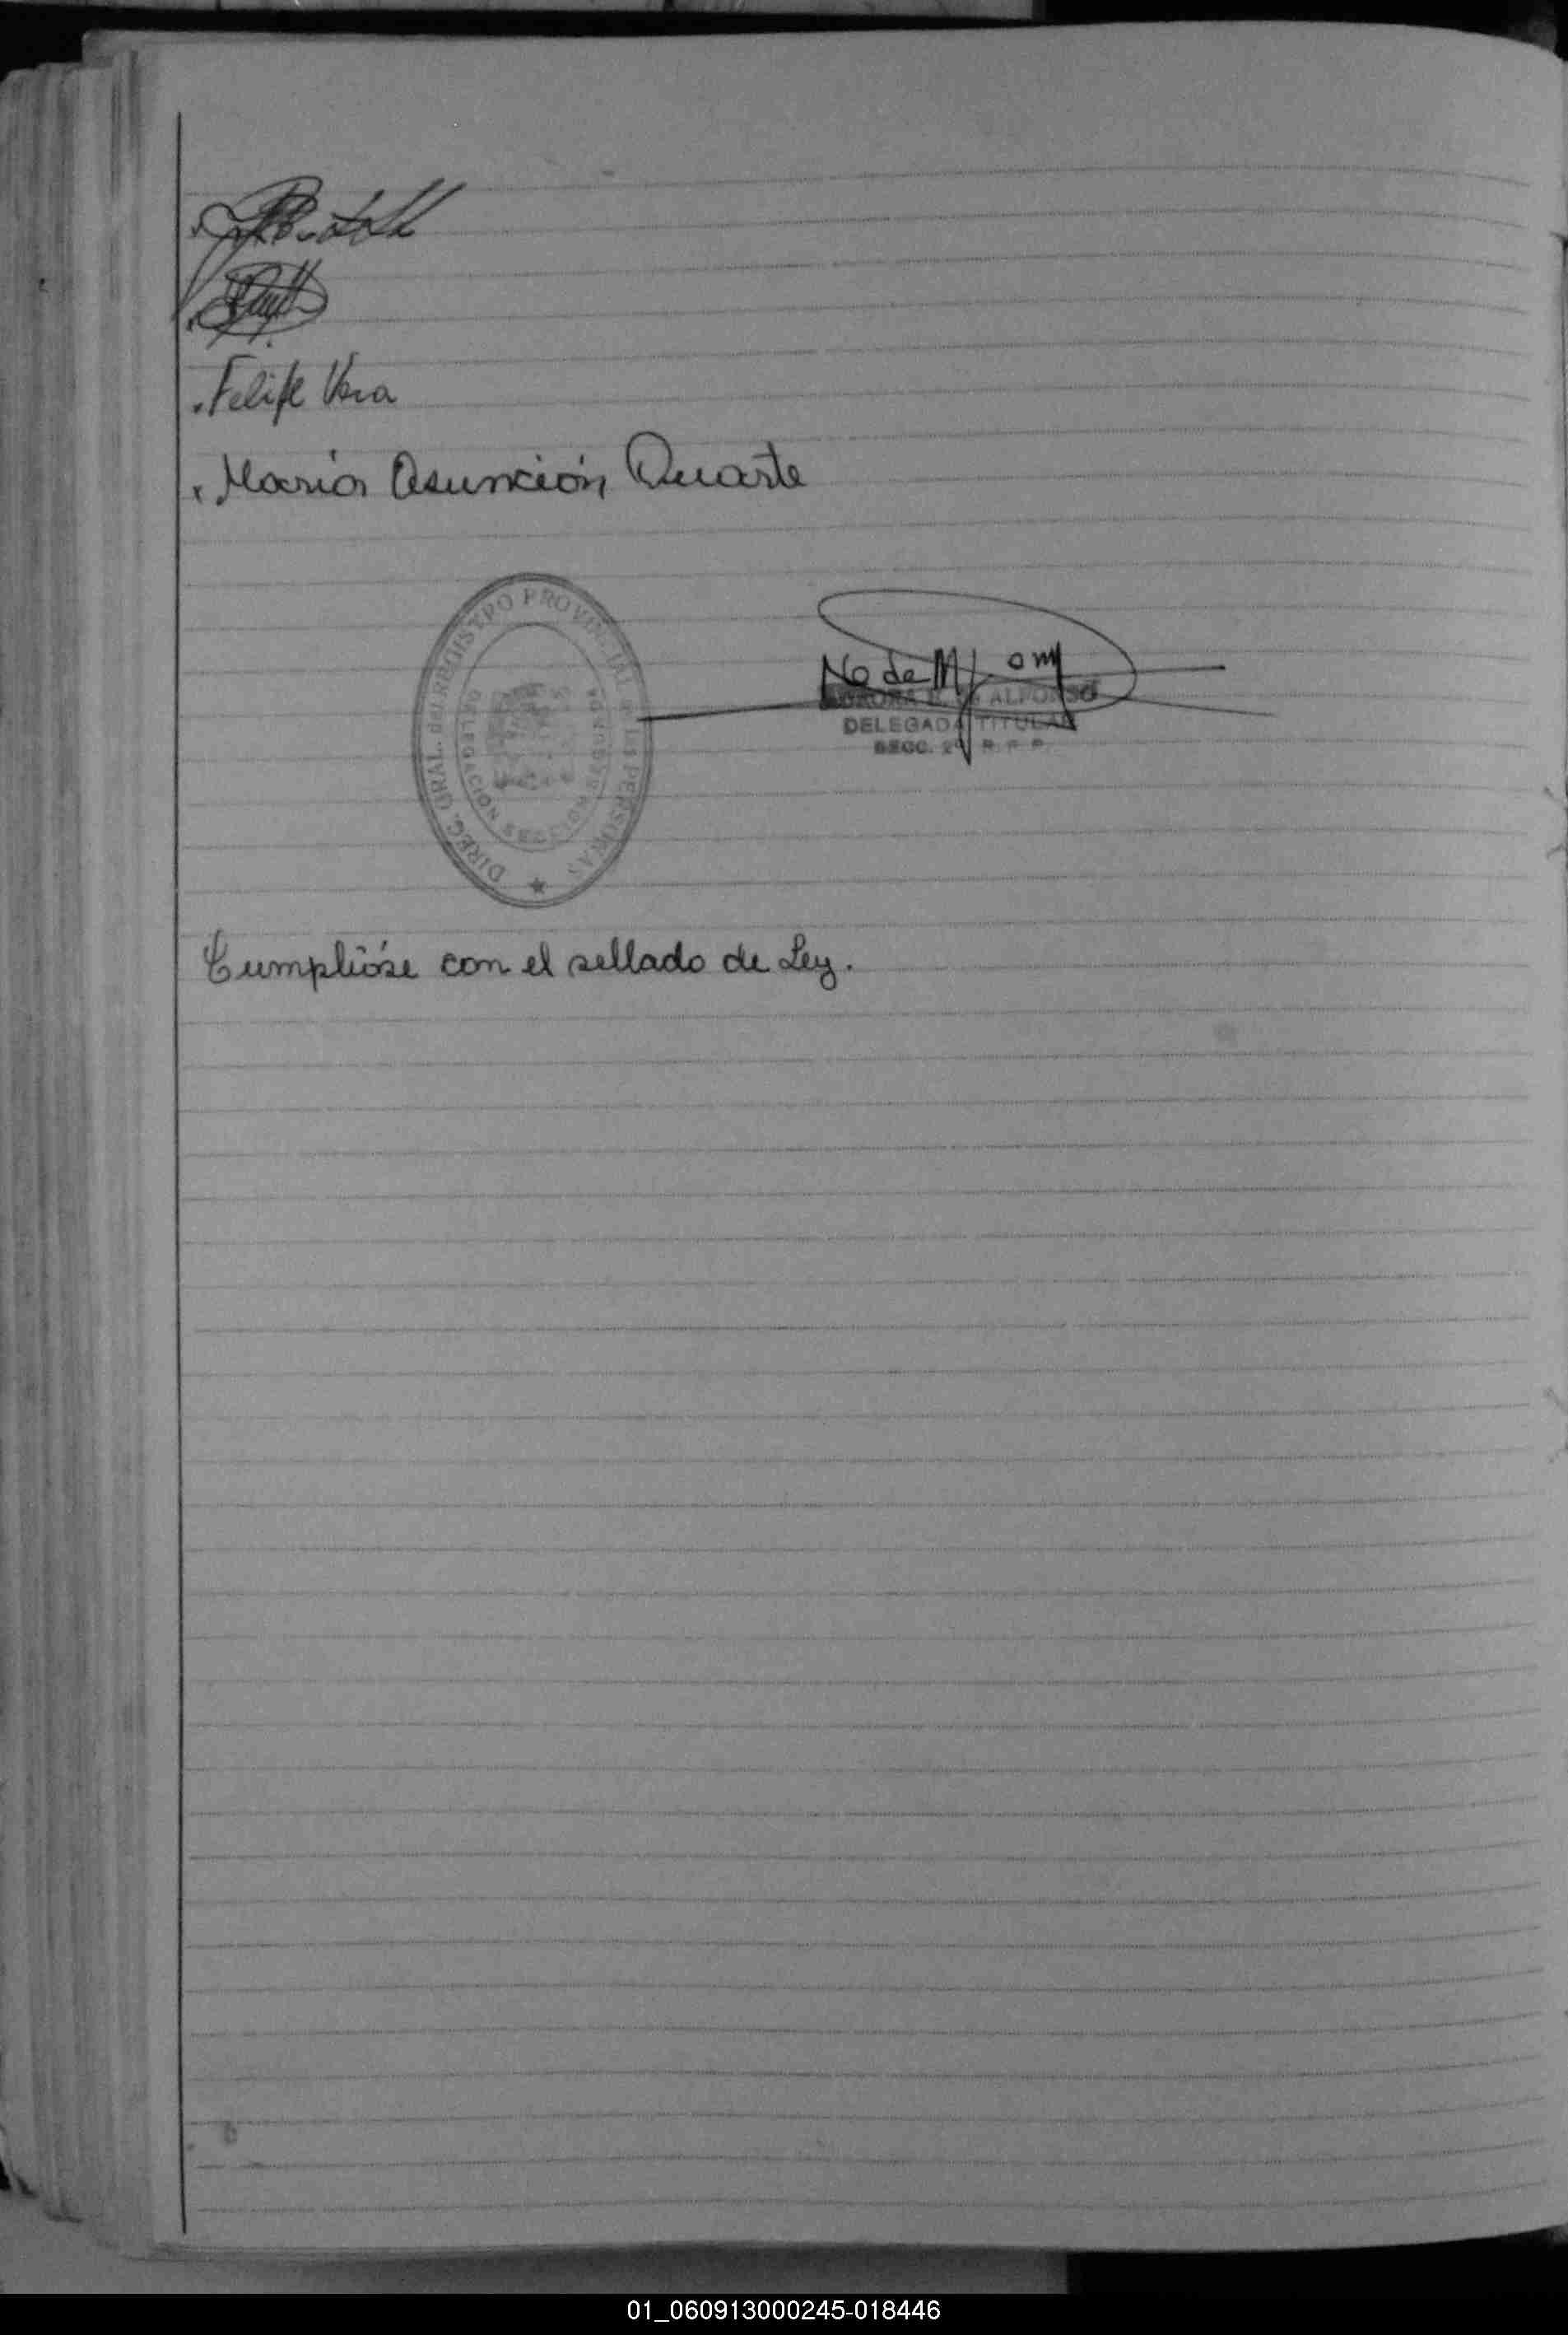 . Felipe Vera
. María Asunción Duarte
DIREC. GRAL. del REGISTRO PROVINCIAL de las PERSONAS
DELEGACION SECCION SEGUNDA
ALFONSO
DELEGADA TITULAR
SECC. 2ª R. P. P.
Cumplióse con el sellado de Ley.
01_060913000245-018446